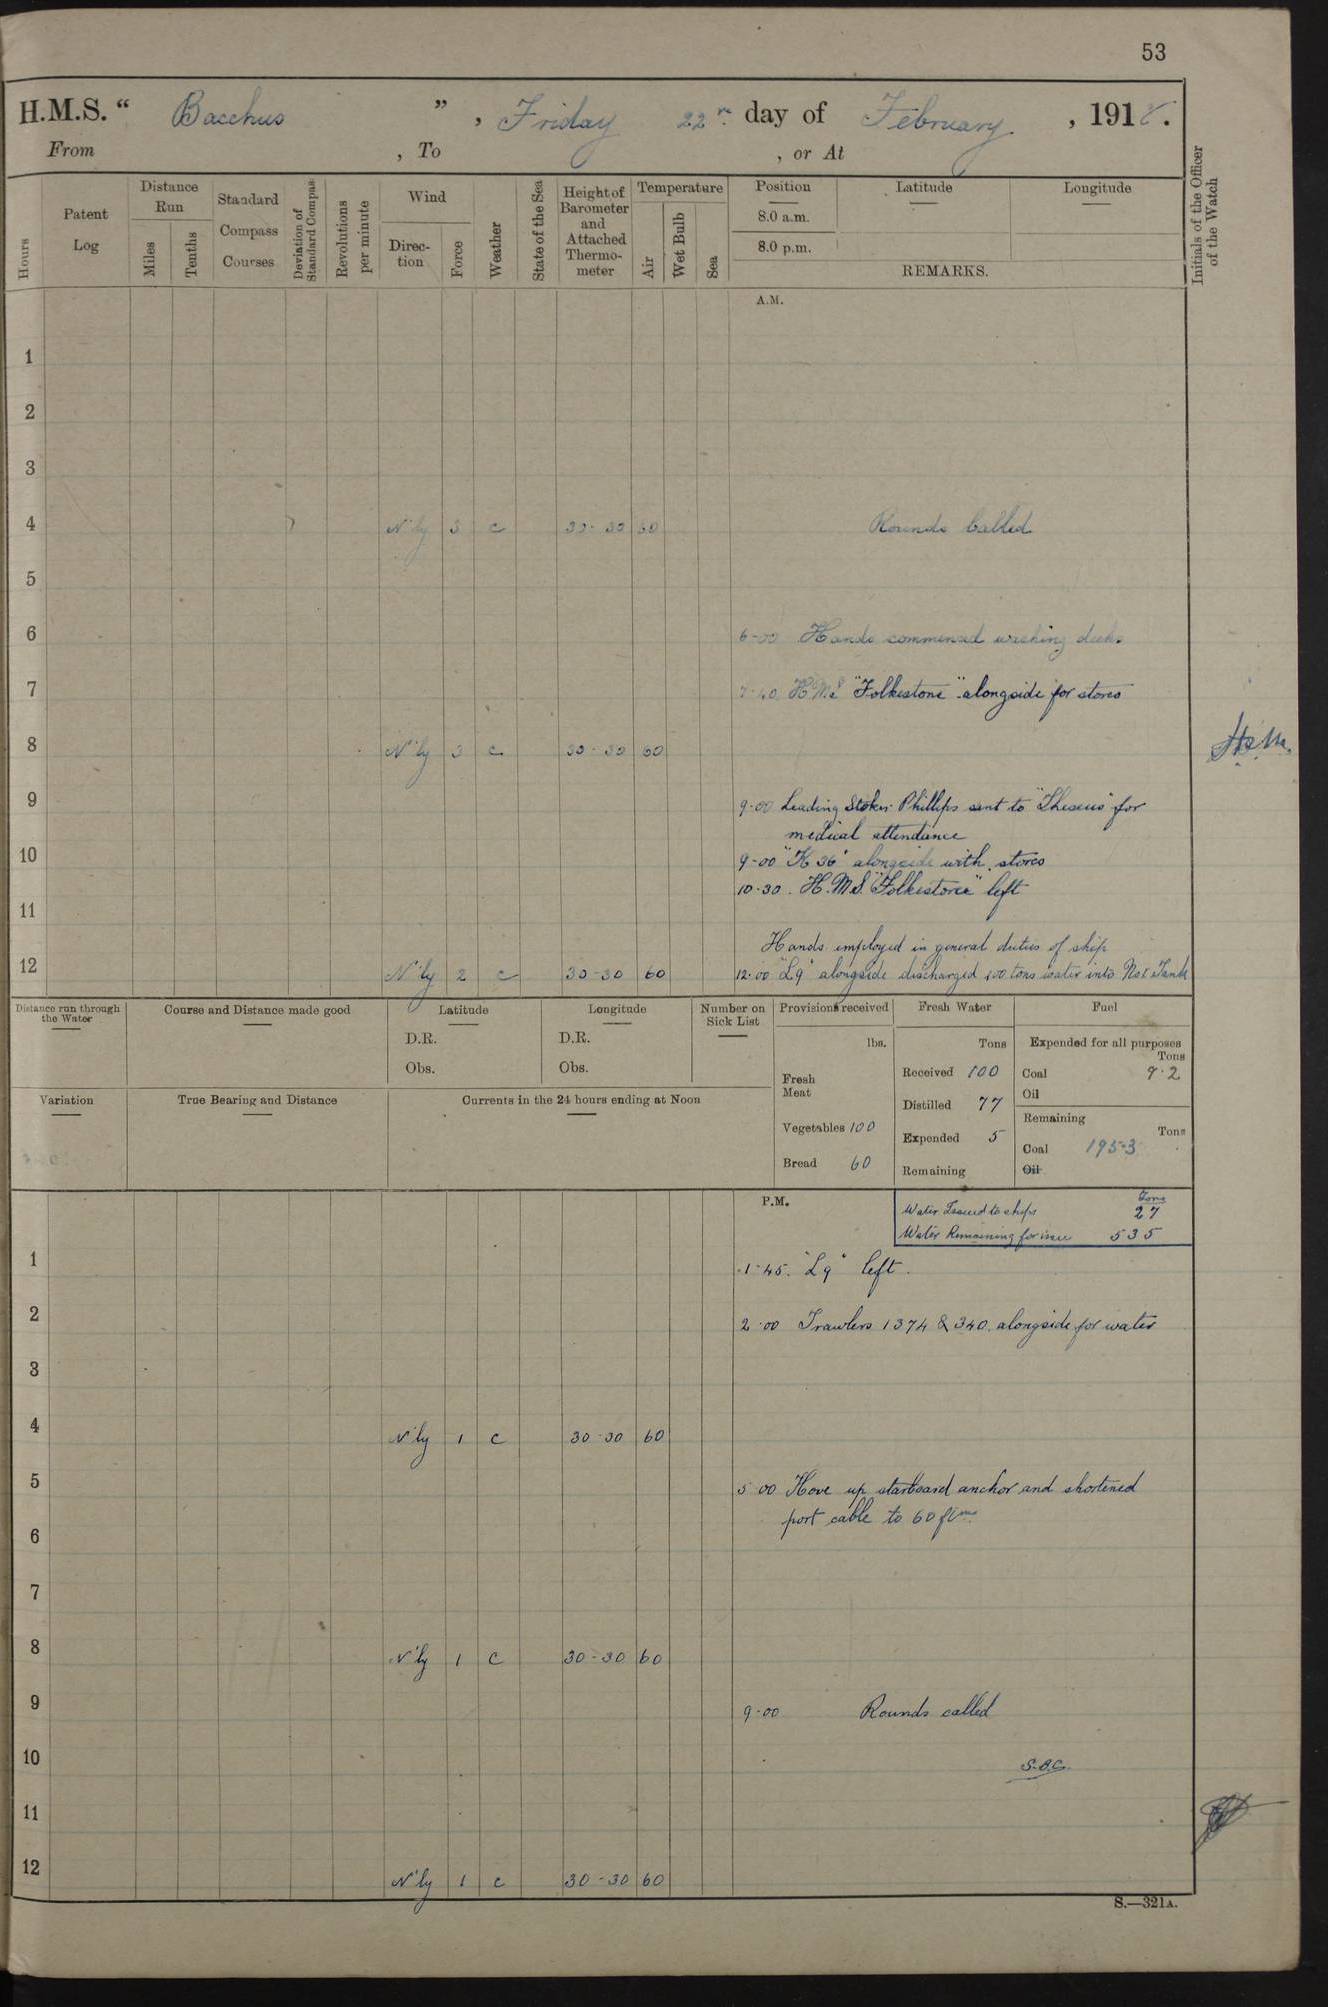 53
H.M.S. " Bacchus ", Friday 22nd day of February, 1918.
From , To , or At
Hours
Patent Log
Distance Run
Miles
Tenths
Standard Compass Courses
Deviation of Standard Compass
Revolutions per minute
Wind
Direction
Force
Weather
State of the Sea
Height of Barometer and Attached Thermometer
Temperature
Air
Wet Bulb
Sea
Position Latitude Longitude
8.0 a.m.
8.0 p.m.
REMARKS.
Initials of the Officer of the Watch
A.M.
1
2
3
4 N'ly 3 c 30-30 60 Rounds Called
5
6 6-00 Hands commenced washing decks
7 7-40 H.M.S "Folkestone" alongside for stores
8 N'ly 3 c 30-30 60
9 9-00 Leading Stoker Phillips sent to "Theseus" for
medical attendance
10 9-00 "K 36" alongside with stores
10-30. H.M.S. "Folkestone" left
11
Hands employed in general duties of ship
12 N'ly 2 c 30-30 60 12.00 "L9" alongside discharged 100 tons water into No1 Tank
Distance run through the Water
Course and Distance made good
Latitude
D.R.
Obs.
Longitude
D.R.
Obs.
Number on Sick List
Provisions received
lbs.
Fresh Meat
Vegetables 100
Bread 60
Fresh Water
Tons
Received 100
Distilled 77
Expended 5
Remaining
Fuel
Expended for all purposes
Tons
Coal 9.2
Oil
Remaining
Tons
Coal 1953
Oil
Variation
True Bearing and Distance
Currents in the 24 hours ending at Noon
P.M.
Tons
Water Issued to ships 27
Water Remaining for issue 535
1 1-45. "L9" left.
2 2-00 Trawlers 1374 & 340 alongside for water
3
4 N'ly 1 c 30-30 60
5 5-00 Hove up starboard anchor and shortened
port cable to 60 fms
6
7
8 N'ly 1 c 30-30 60
9 9-00 Rounds called
10
11
12 N'ly 1 c 30-30 60
S.—321A.